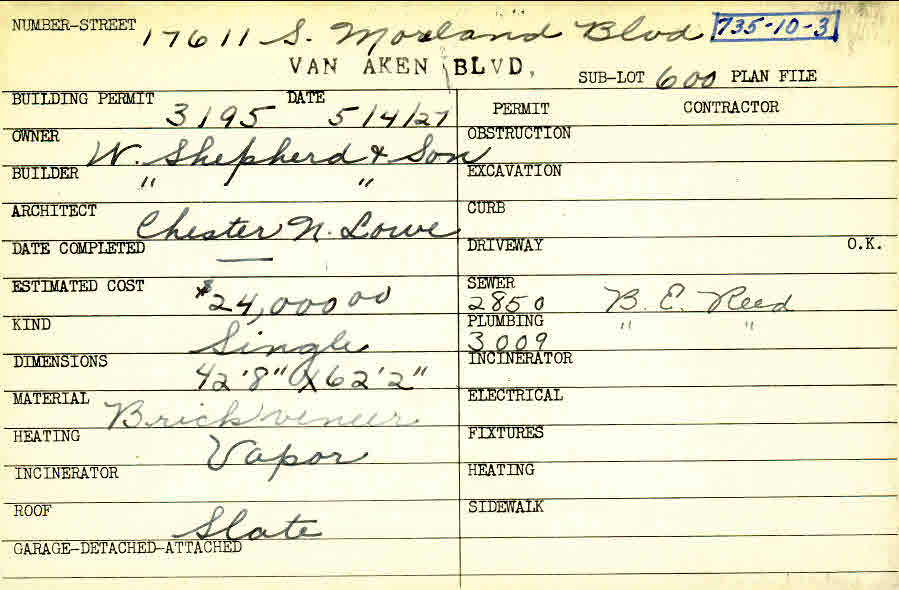 NUMBER-STREET 17611 S. Moreland Blvd 735-10-3
VAN AKEN BLVD. SUB-LOT 600 PLAN FILE
BUILDING PERMIT 3195 DATE 5/4/27 PERMIT CONTRACTOR
OWNER W. Shepherd & Son OBSTRUCTION
BUILDER " " EXCAVATION
ARCHITECT Chester N. Lowe CURB
DATE COMPLETED — DRIVEWAY O.K.
ESTIMATED COST $24,000 00 SEWER 2850 B. E. Reed
KIND Single PLUMBING 3009 " "
DIMENSIONS 42'8" X 62'2" INCINERATOR
MATERIAL Brick veneer ELECTRICAL
HEATING Vapor FIXTURES
INCINERATOR HEATING
ROOF Slate SIDEWALK
GARAGE-DETACHED-ATTACHED